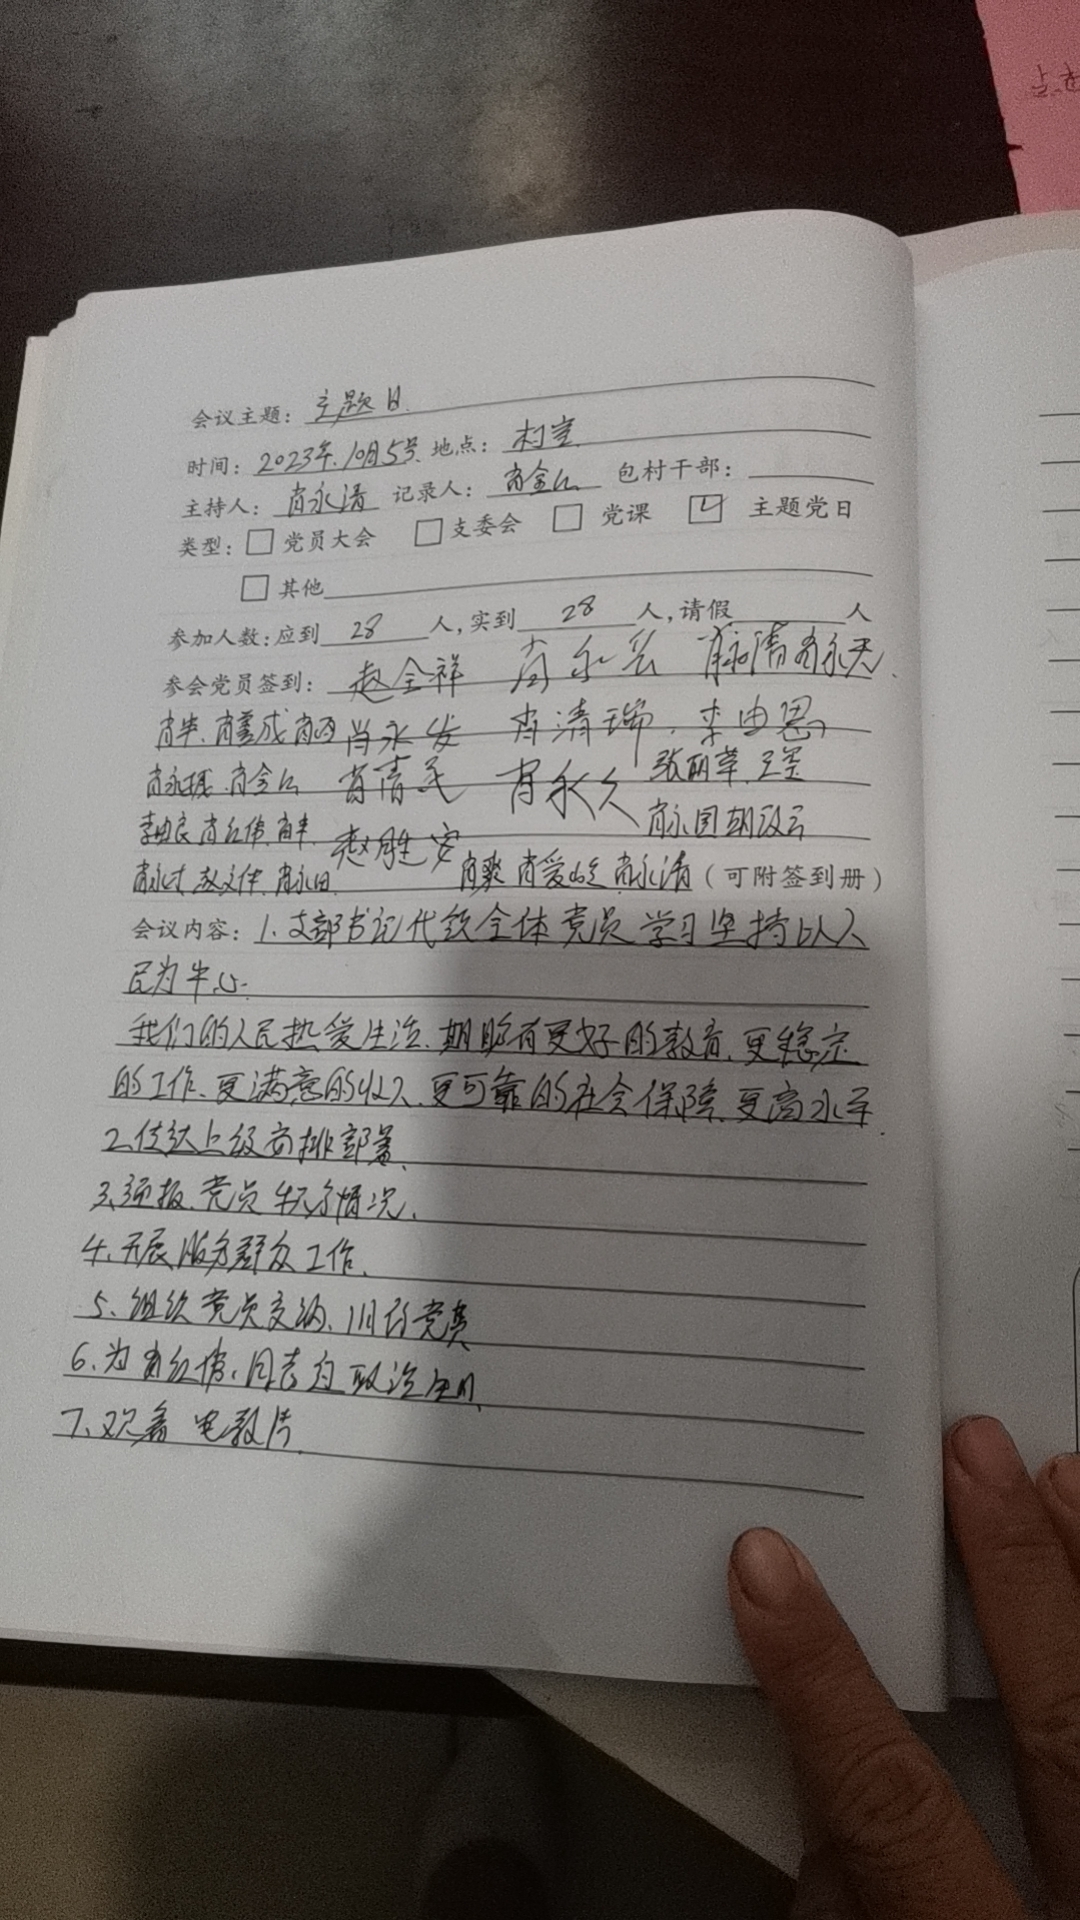 会议主题: 主题日.
时间: 2023年.10月5号. 地点: 村室
主持人: 肖永清 记录人: 肖全 包村干部:
类型: 党员大会 支委会 党课 主题党日
其他
参加人数: 应到 28 人, 实到 28 人, 请假 人
参会党员签到: 赵全祥 肖永清 肖永天
肖永发 肖清瑞. 李由恩
肖清 肖永久 张丽萍
李由良 肖永国
赵胜安
赵文伟 肖爽 肖爱 肖永清 (可附签到册)
会议内容: 1. 支部书记代领全体党员学习坚持以人
民为中心.
我们的人民热爱生活、期盼有更好的教育、更稳定
的工作、更满意的收入、更可靠的社会保障、更高水平
2、传达上级安排部署、
3、通报、党员 情况、
4、开展服务群众工作、
5、组织党员交纳、11月份党费
6、为肖红伟、同志过政治生日、
7、观看 电教片